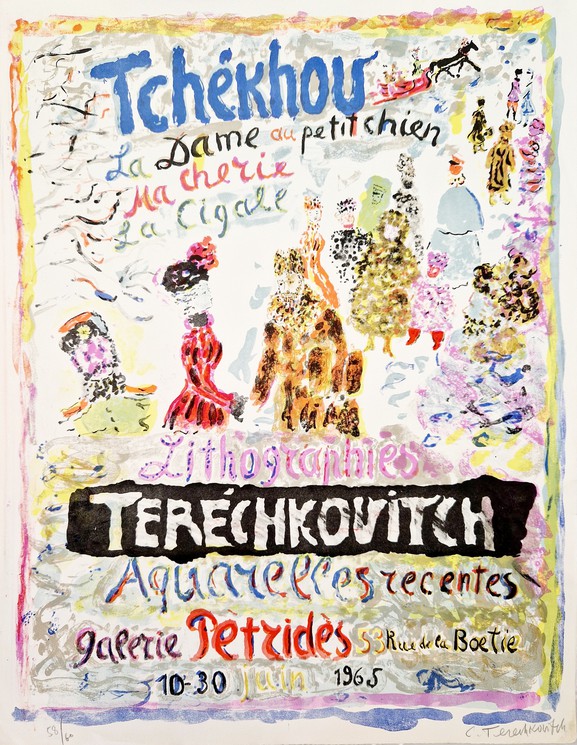 Tchékhov
La Dame au petit chien
Ma cherie
La Cigale
Lithographies
TERÉCHKOVITCH
Aquarelles recentes
galerie Pétridès 53 Rue de la Boetie
10-30 juin 1965
C. Terechkovitch